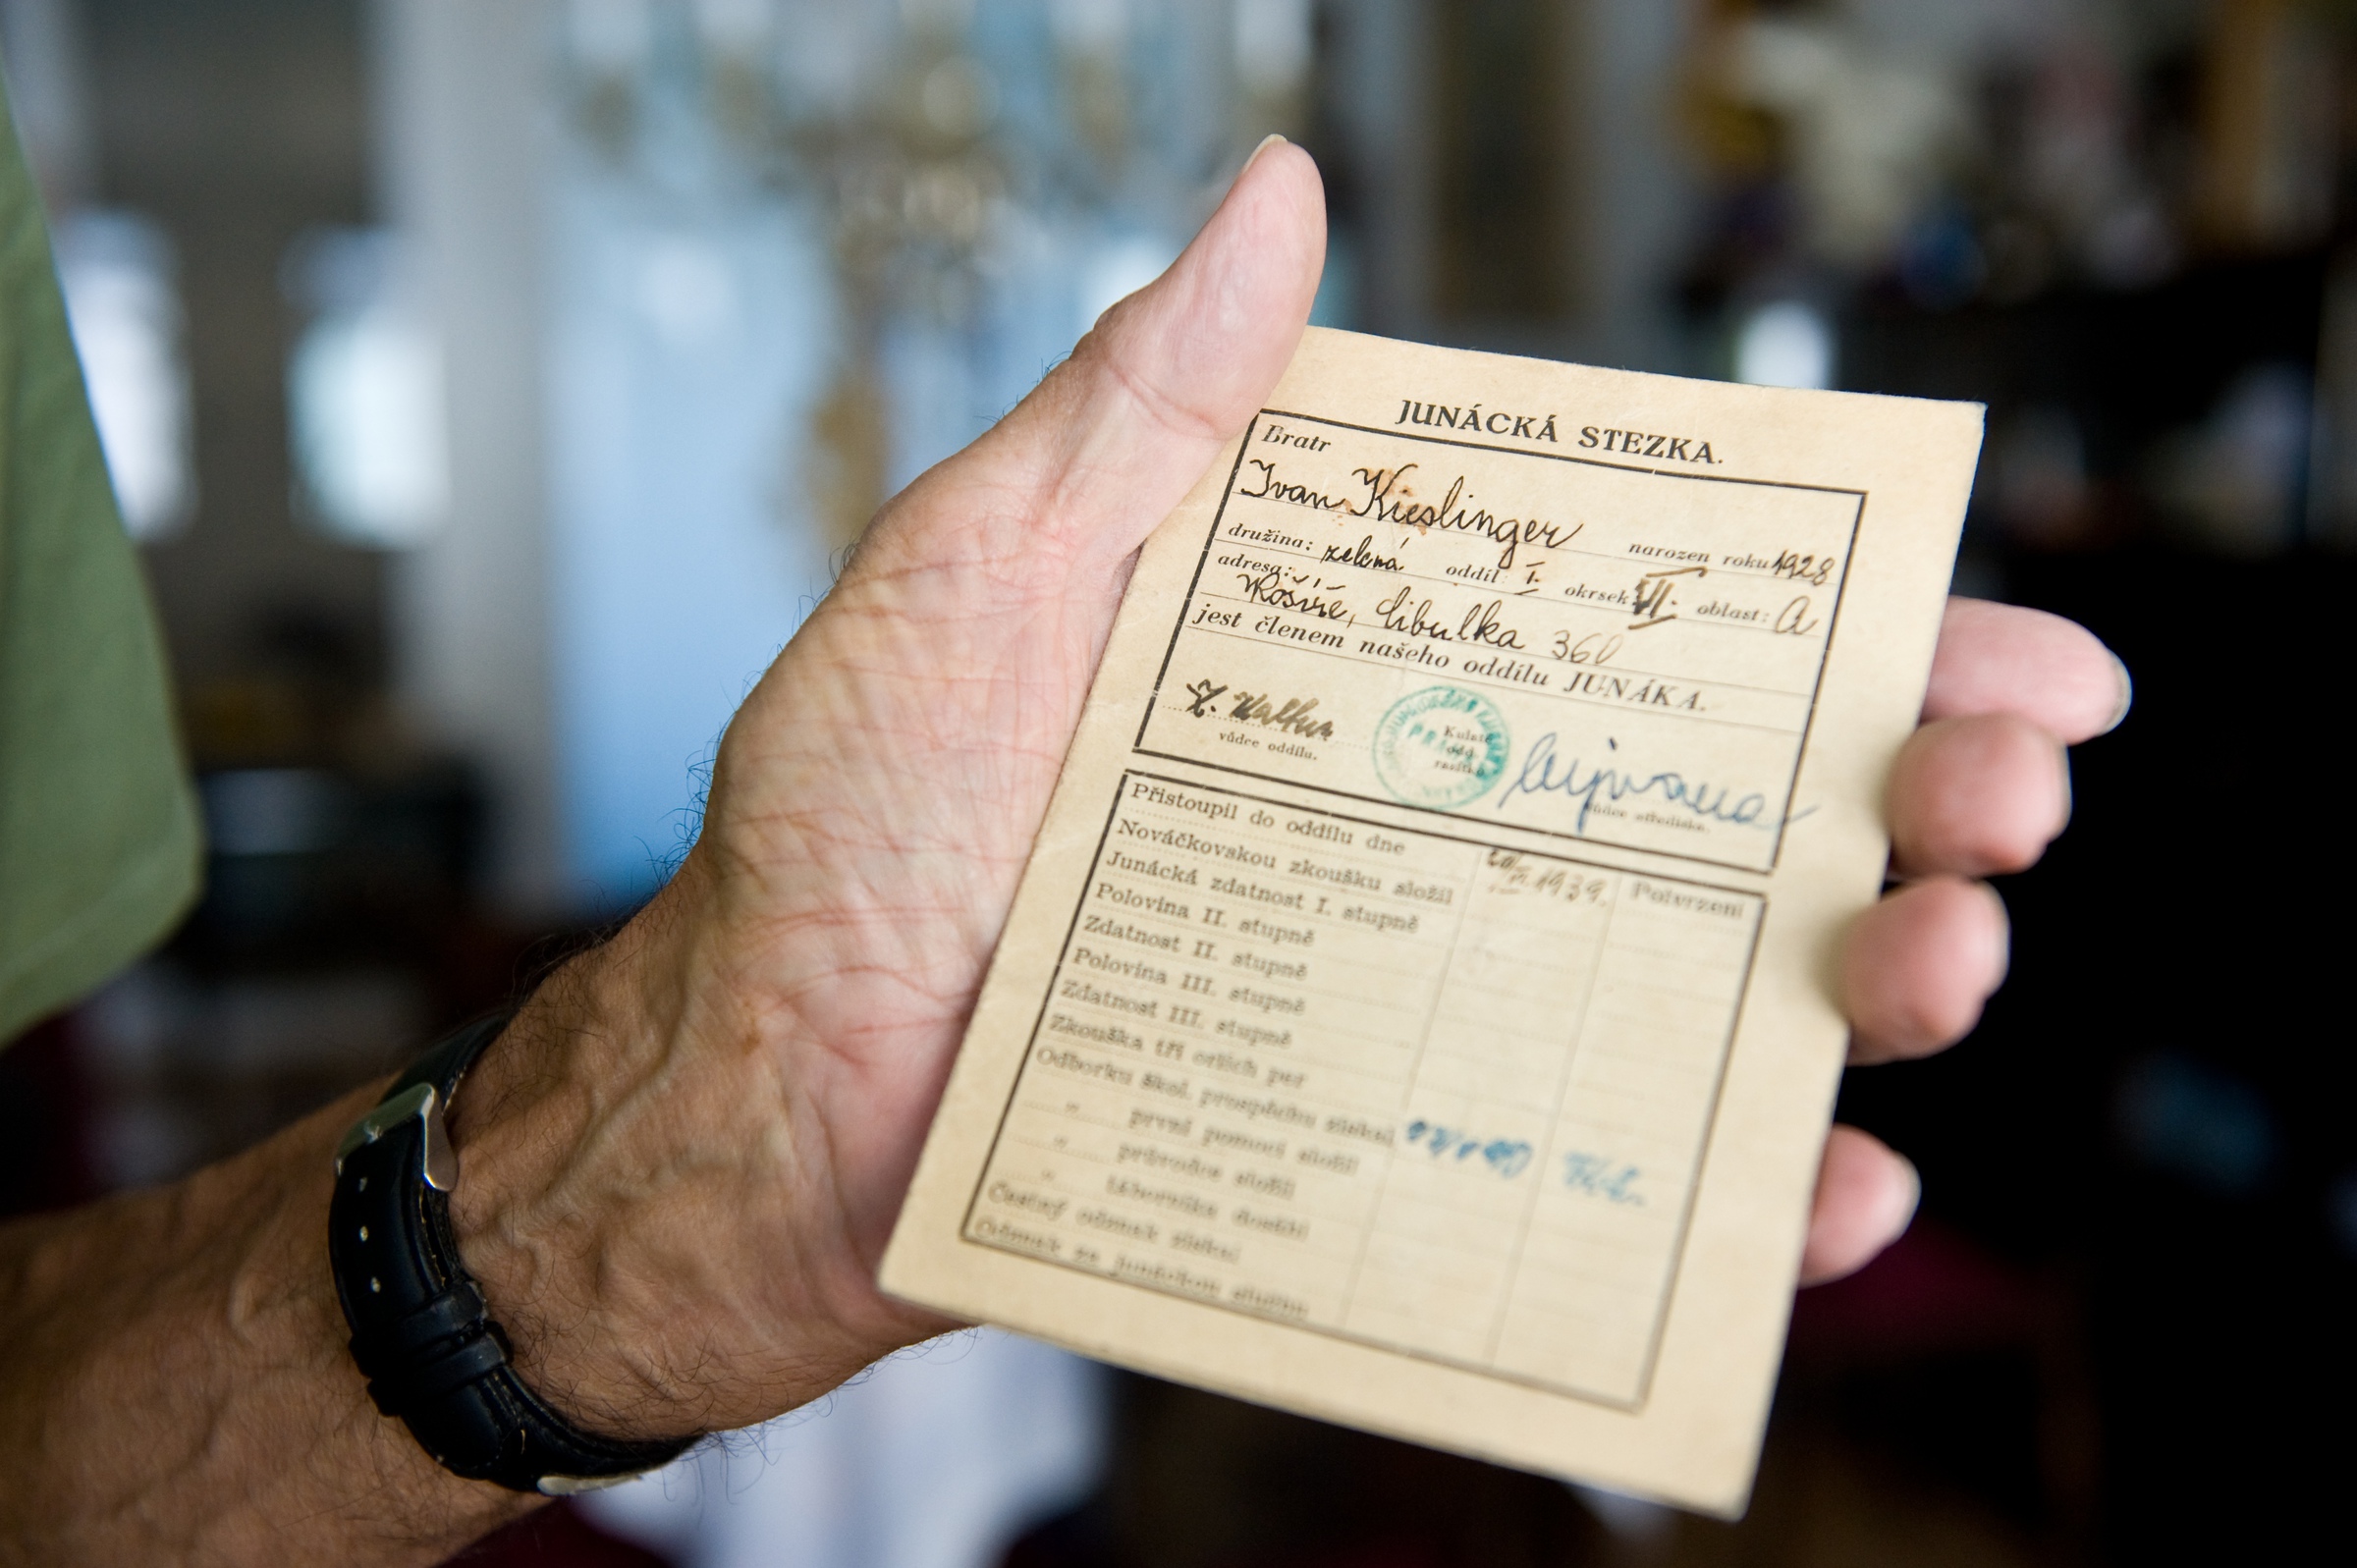 JUNÁCKÁ STEZKA.
Bratr
Ivan Kieslinger narozen roku 1928
družina: zelená oddíl: I. okrsek: VI. oblast: A
adresa: Košíře, Cibulka 360
jest členem našeho oddílu JUNÁKA.
vůdce oddílu. Kulaté odd. razítko vůdce střediska.
Přistoupil do oddílu dne 1939. Potvrzení
Nováčkovskou zkoušku složil
Junácká zdatnost I. stupně
Polovina II. stupně
Zdatnost II. stupně
Polovina III. stupně
Zdatnost III. stupně
Zkouška tří orlích per
Odborku škol. prospěchu získal
" první pomoci složil
" průvodce složil
" táborníka
Čestný odznak získal
Odznak za junáckou službu